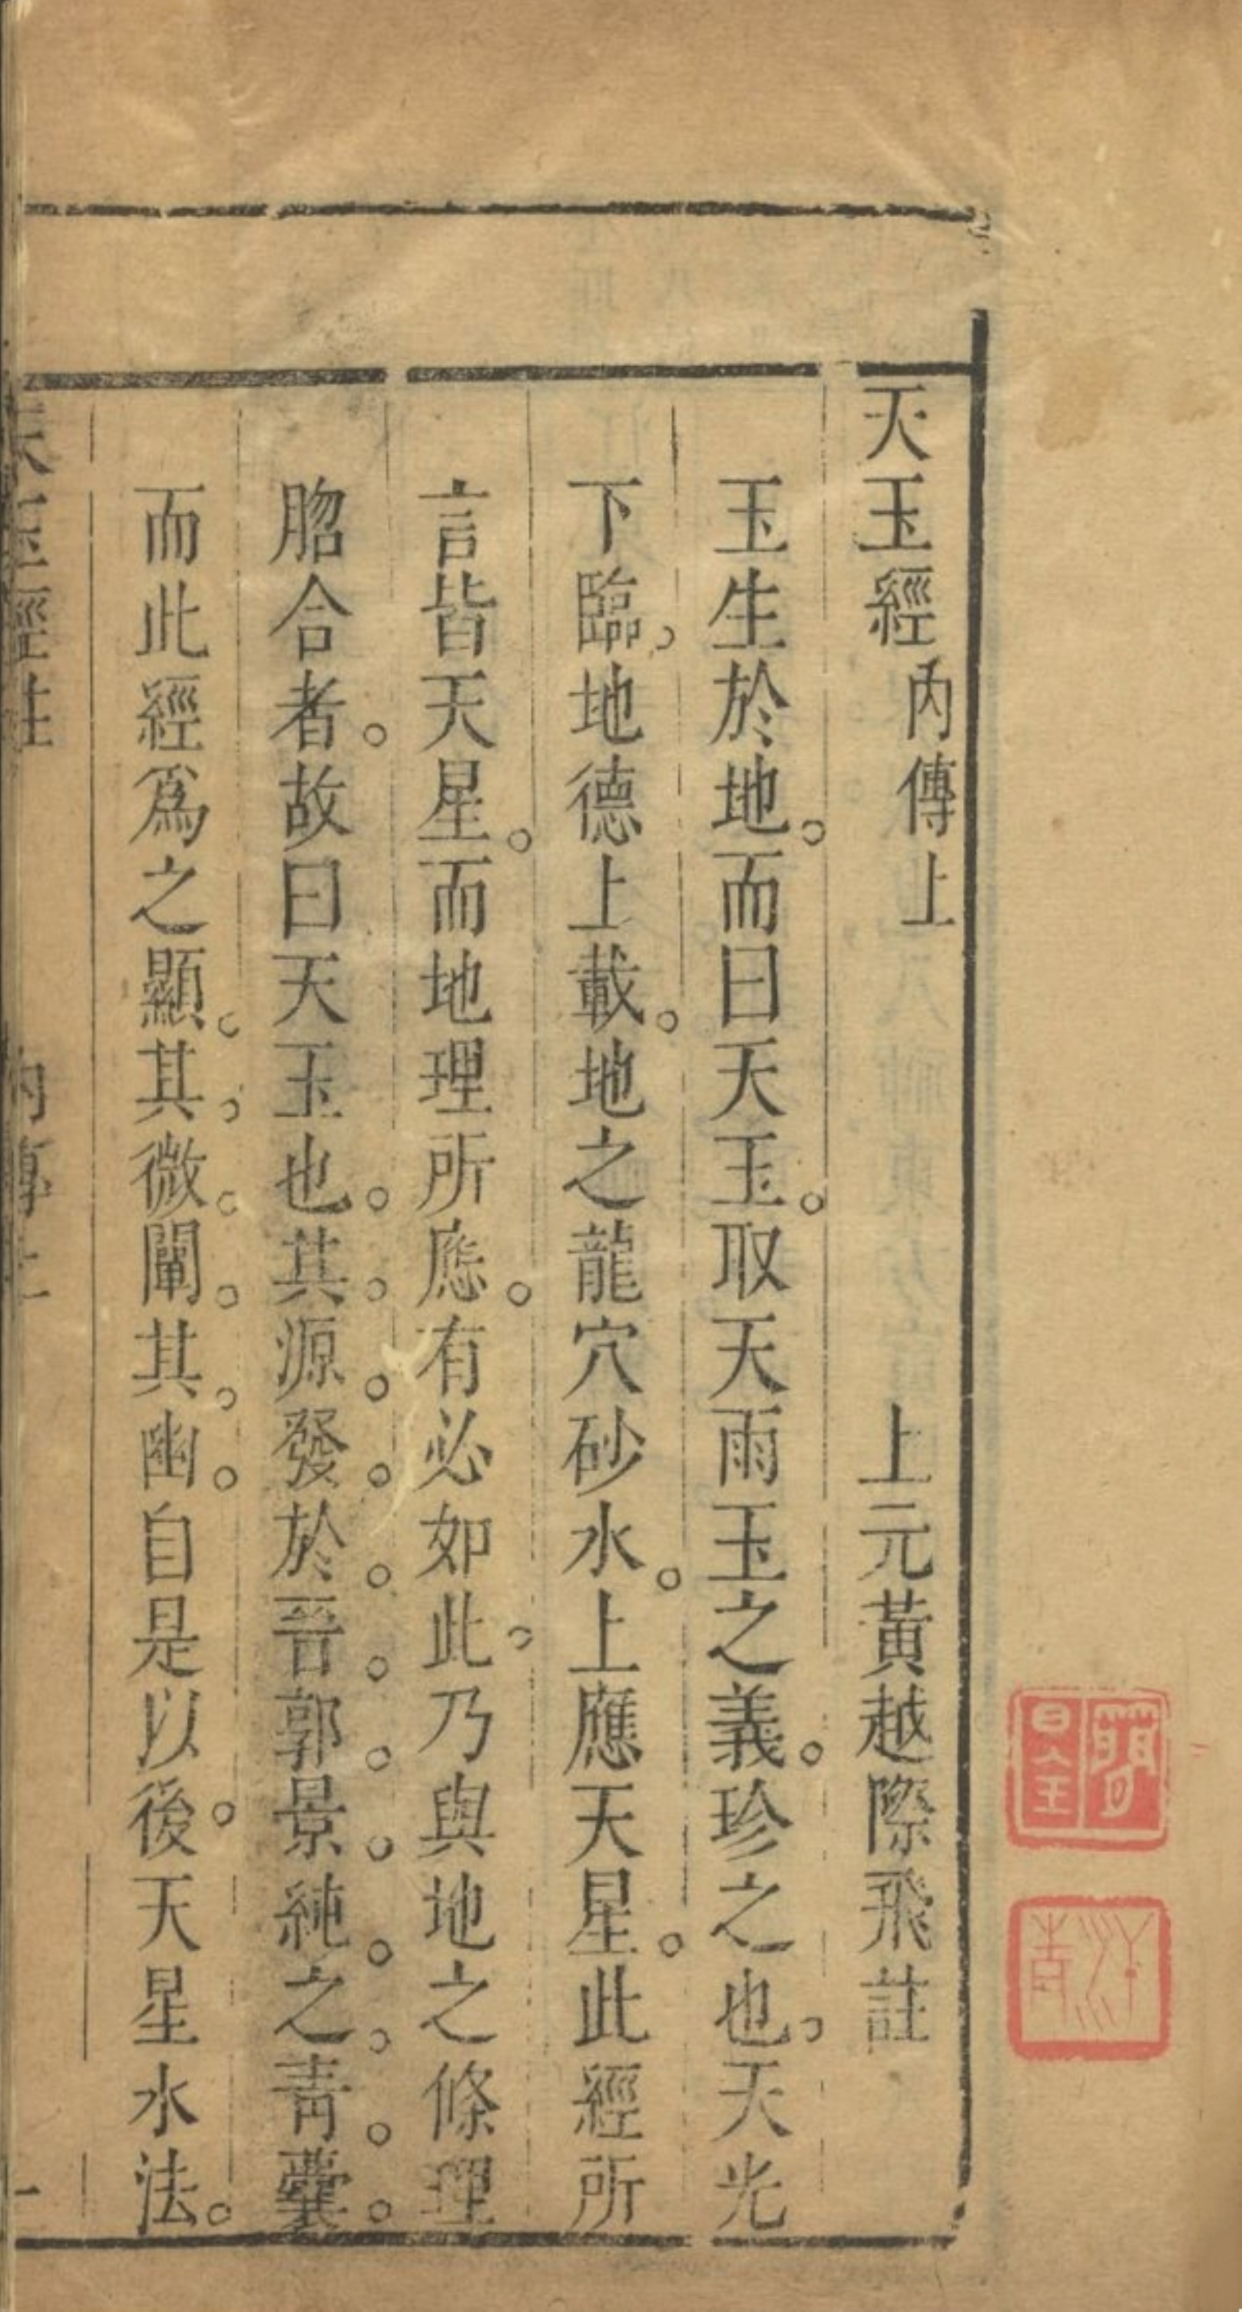 天玉經內傳上 上元黃越際飛註
玉生於地。而曰天玉。取天雨玉之義。珍之也。天光
下臨。地德上載。地之龍穴砂水。上應天星。此經所
言皆天星。而地理所應。有必如此。乃與地之條理
脗合者。故曰天玉也。其。源。發。於。晉。郭。景。純。之。青。囊。
而此經爲之顯。其。微。闡。其。幽。自是以後。天星水法。
天玉經註 內傳上 一